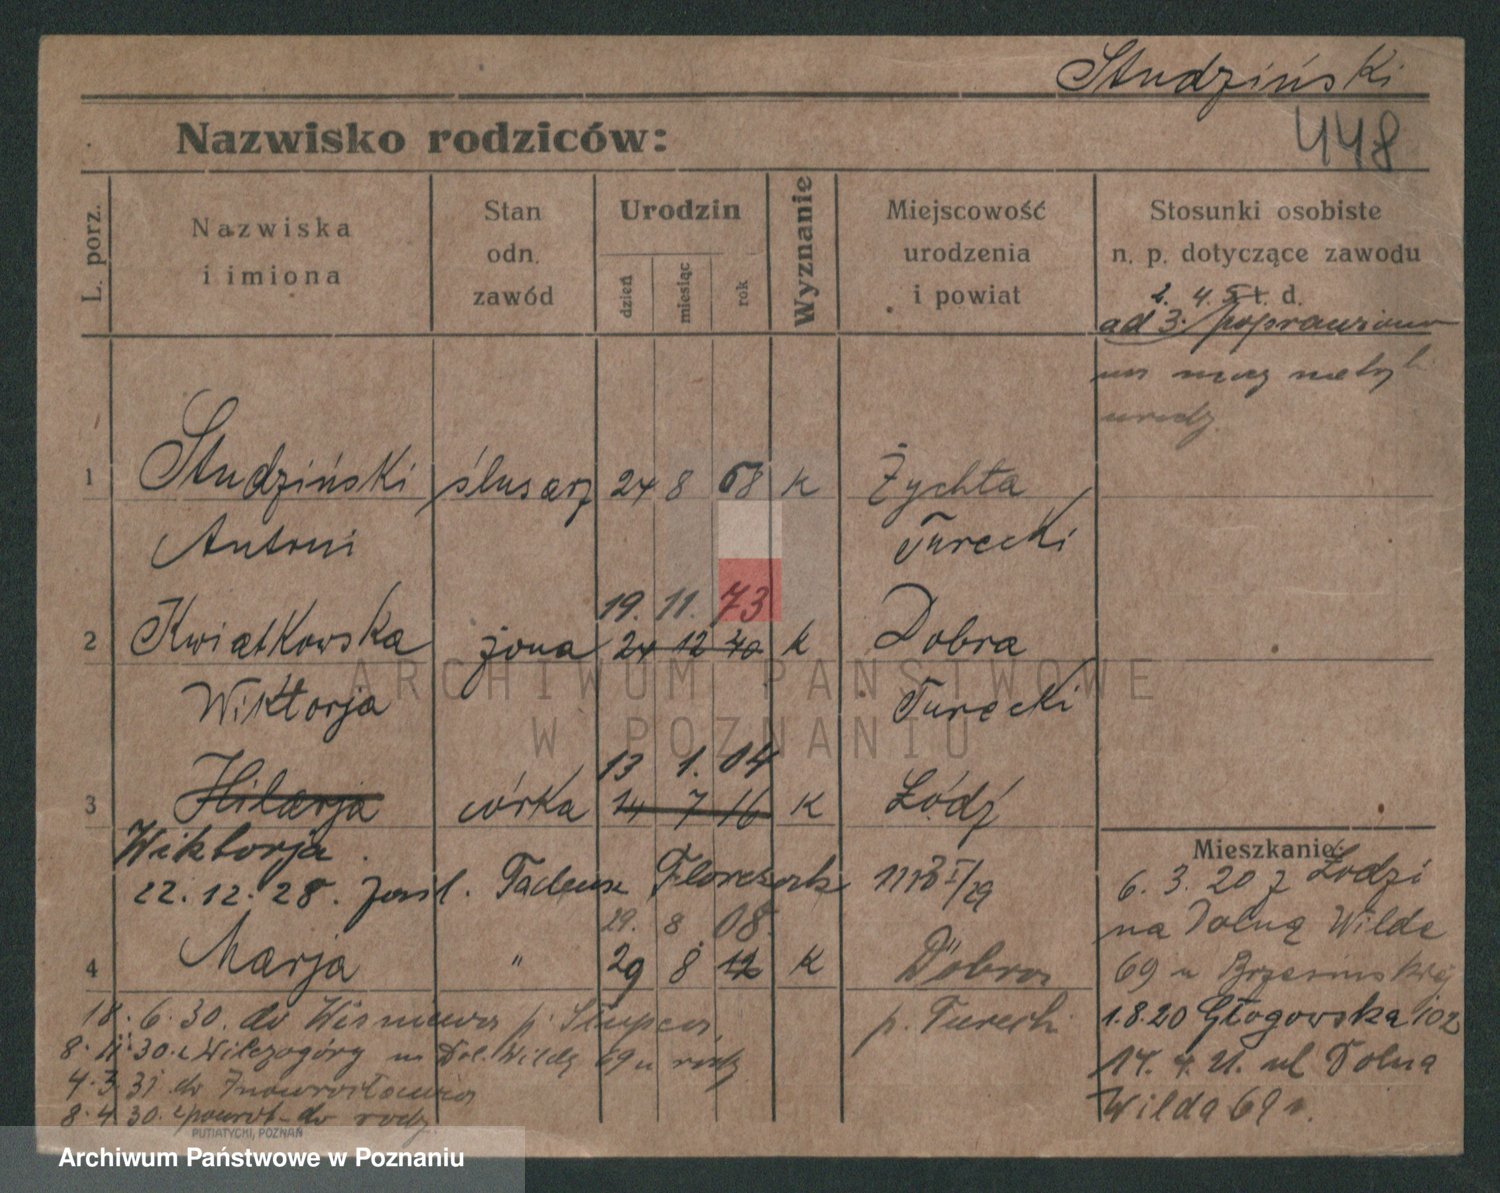 Studziński
Nazwisko rodziców:
448
L. porz.
Nazwiska
i imiona
Stan
odn.
zawód
Urodzin
dzień
miesiąc
rok
Wyznanie
Miejscowość
urodzenia
i powiat
Stosunki osobiste
n. p. dotyczące zawodu
i t. d.
2. 4. 5
ad 3. poprawiono
na metryki
urodz.
1 Studziński ślusarz 24 8 68 K Żychta
Antoni Turecki
19. 11. 73
2 Kwiatkowska żona 24 12 70 K Dobra
Wiktorja Turecki
13 1. 04
3 Hilarja córka 14 7 16 K Łódź
Wiktorja.
22. 12. 28. Tadeusz I/29
29. 8 08.
4 Marja " 29 8 12 K Dobra
p. Turecki
18. 6. 30. do p. Słupca
8. 11. 30. z Wilczogóry na Dol. Wildę 69 u
4. 3. 31 do Inowrocławia
8. 4. 30. powrót do rodz.
Mieszkanie:
6. 3. 20 z Łodzi
na Dolną Wildę
69 u Brzezińskiej
1.8.20 Głogowska 102
14. 4. 21. ul Dolna
Wilda 69
PUTIATYCKI, POZNAŃ
ARCHIWUM PAŃSTWOWE
W POZNANIU
Archiwum Państwowe w Poznaniu